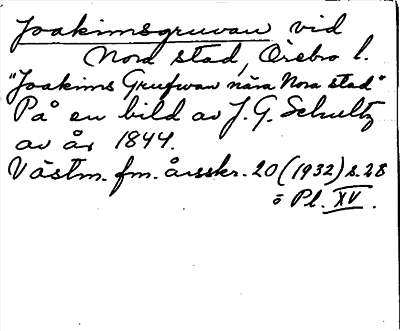 Joakimsgruvan vid
Nora stad, Örebro l.
"Joakims Grufwan nära Nora stad"
På en bild av J. G. Schultz
av år 1844.
Västm. fm. årsskr. 20 (1932) s. 28
o Pl. XV.